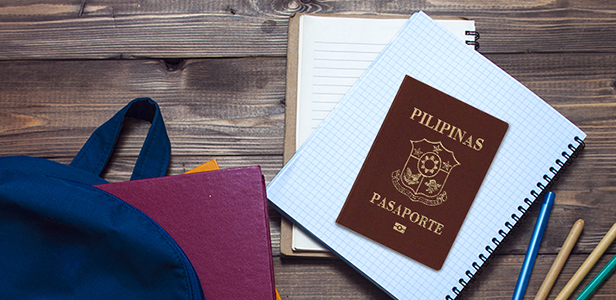 PILIPINAS
PASAPORTE